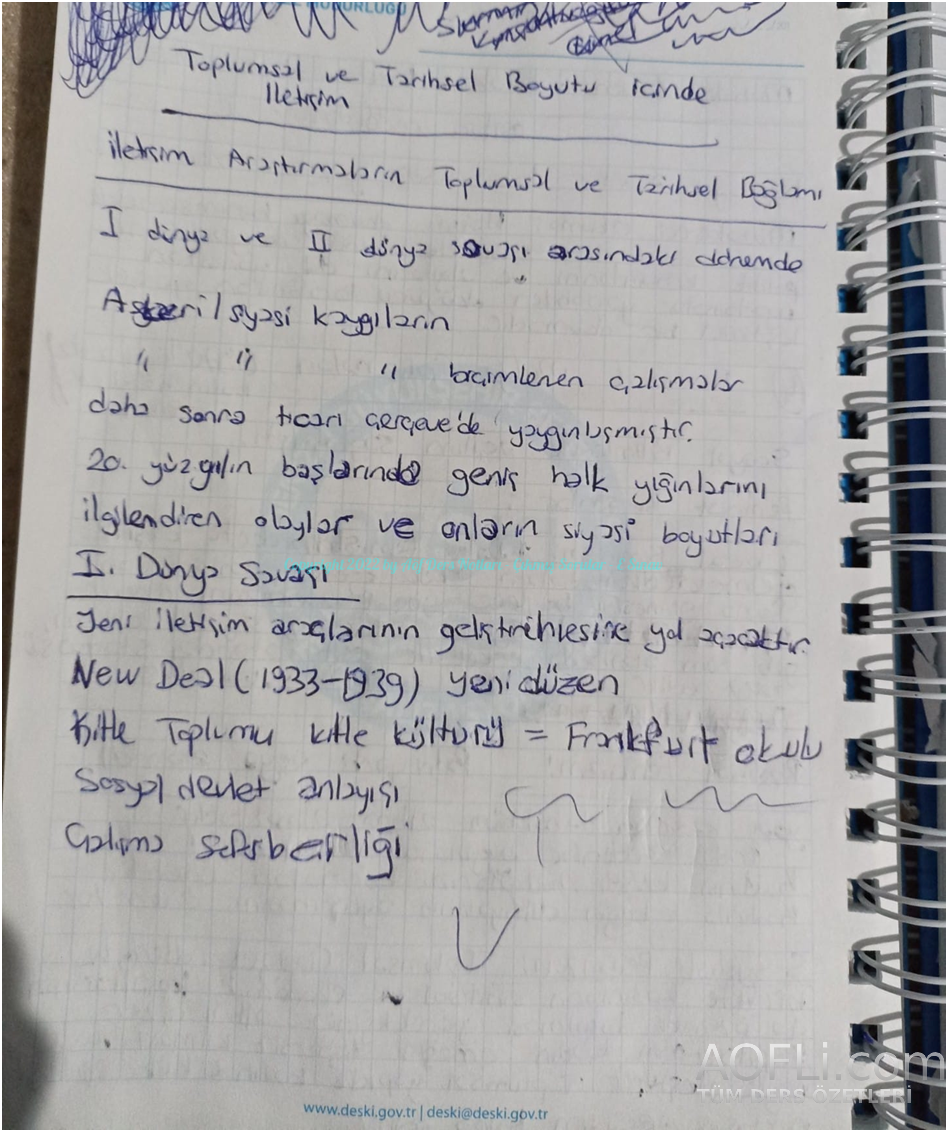 Toplumsal ve Tarihsel Boyutu icinde
Iletişim
iletişim Araştırmaların Toplumsal ve Tarihsel Bağlamı
I dünya ve II dünya savaşı arasındaki dönemde
Askeri / siyasi kaygıların
" " " biçimlenen çalışmalar
daha sonra ticari çerçeve'de yaygınlaşmıştır.
20. yüzyılın başlarında geniş halk yığınlarını
ilgilendiren olaylar ve onların siyasi boyutları
I. Dünya Savaşı
Yeni iletişim araçlarının geliştirilmesine yol açacaktır.
New Deal (1933-1939) yeni düzen
Kitle Toplumu kitle kültürü = Frankfurt okulu
Sosyal devlet anlayışı
Çalışma seferberliği
www.deski.gov.tr | deski@deski.gov.tr
AOFLi.com
TÜM DERS ÖZETLERİ